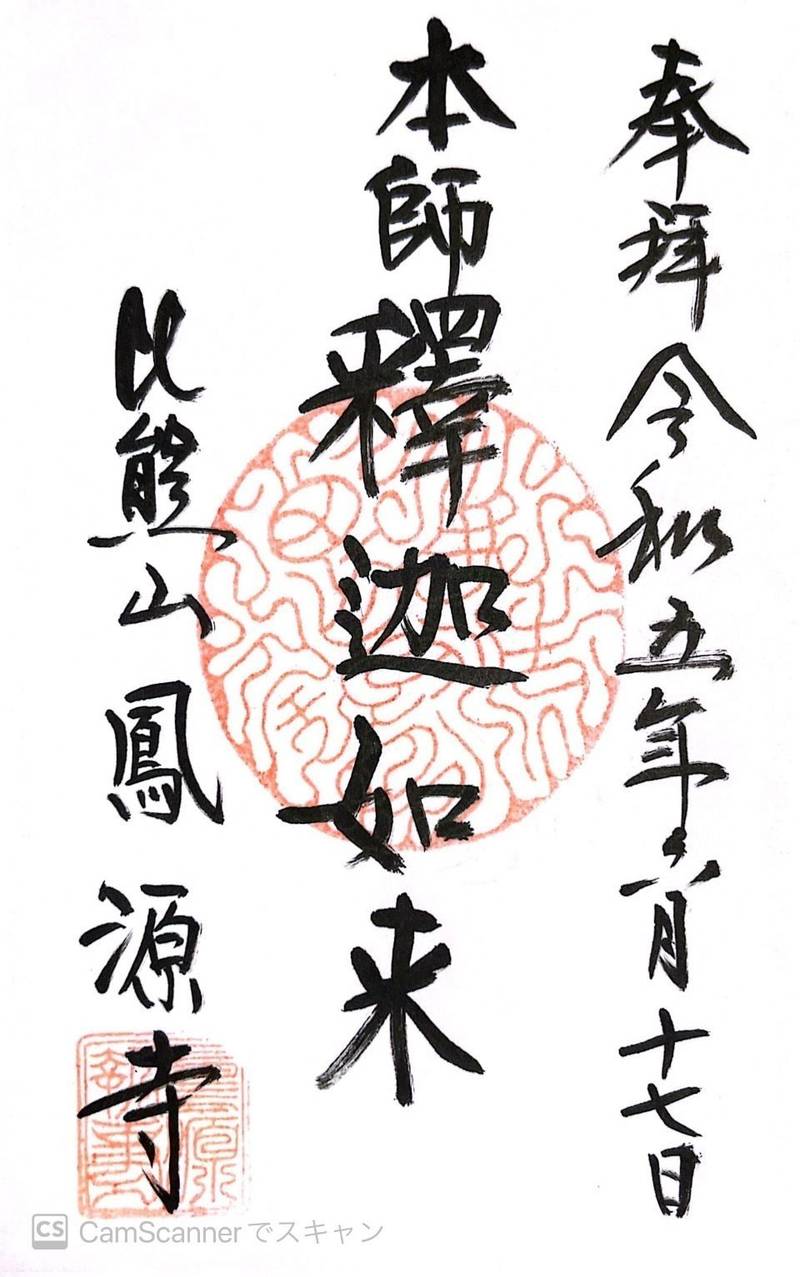 奉拝 令和五年六月十七日
本師釋迦如来
比熊山 鳳源寺
CS CamScannerでスキャン